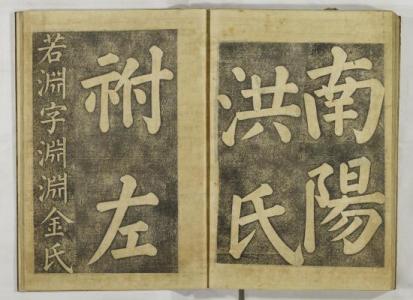 南陽
洪氏
祔左
若淵字淵淵金氏